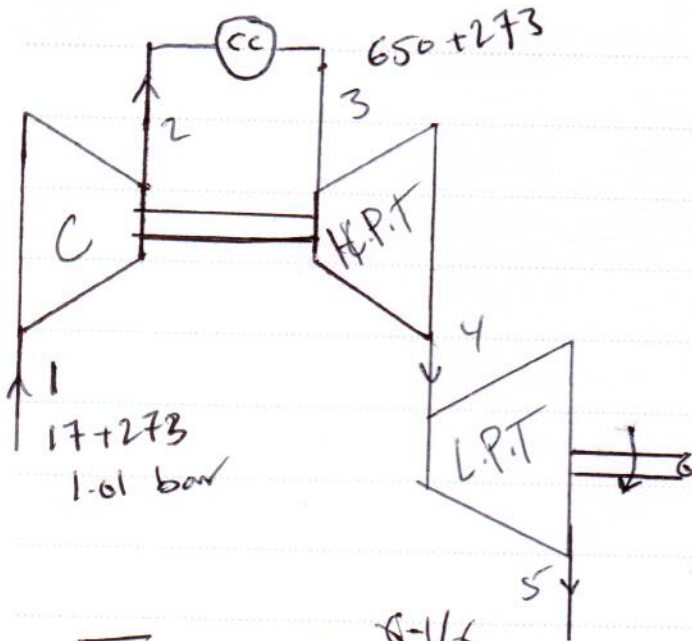 CC
650+273
2
3
C
H.P.T
4
1
17+273
1.01 bar
L.P.T
5